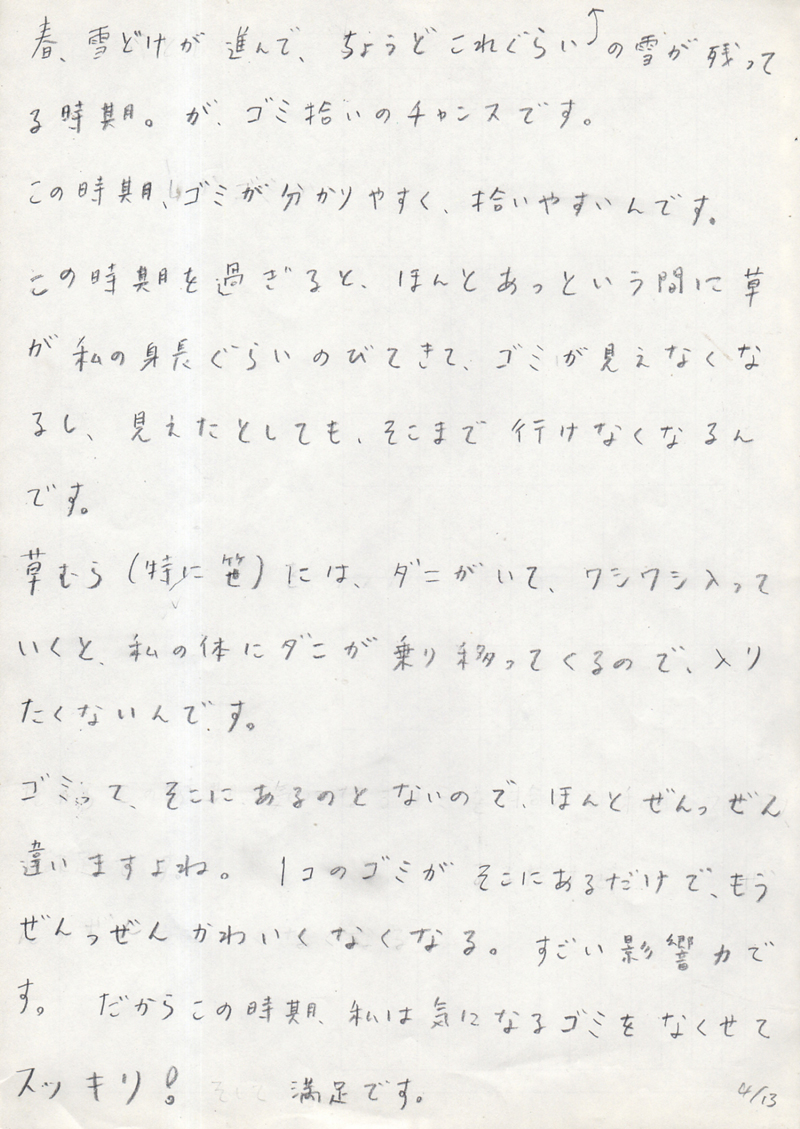 春、雪どけが進んで、ちょうどこれぐらい↑の雪が残って
る時期。が、ゴミ拾いのチャンスです。
この時期、ゴミが分かりやすく、拾いやすいんです。
この時期を過ぎると、ほんとあっという間に草
が私の身長ぐらいのびてきて、ゴミが見えなくな
るし、見えたとしても、そこまで行けなくなるん
です。
草むら(特に笹)には、ダニがいて、ワシワシ入って
いくと、私の体にダニが乗り移ってくるので、入り
たくないんです。
ゴミって、そこにあるのとないので、ほんとぜんっぜん
違いますよね。 1コのゴミがそこにあるだけで、もう
ぜんっぜんかわいくなくなる。すごい影響力で
す。 だからこの時期、私は気になるゴミをなくせて
スッキリ! 満足です。
4/13